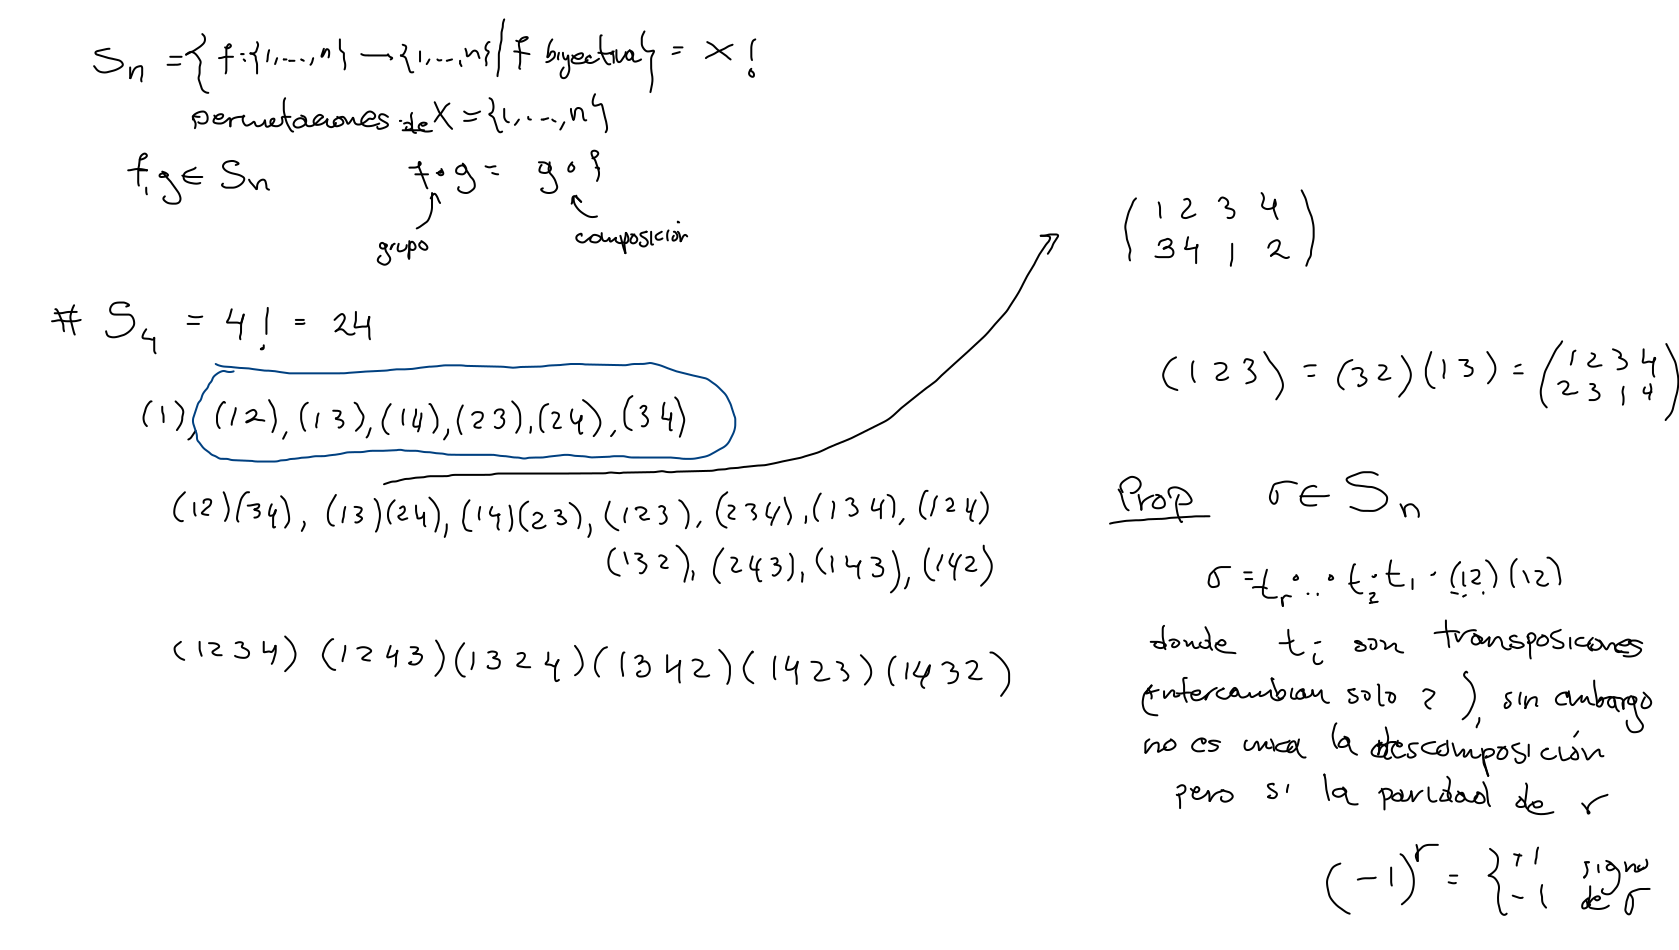 Sn = { f:{1,...,n} → {1,...,n} / f biyectiva } = X!
permutaciones de X = {1,...,n}
f, g ∈ Sn f · g = g ∘ f
grupo composición
# S4 = 4! = 24
(1), (12), (13), (14), (23), (24), (34)
(12)(34), (13)(24), (14)(23), (123), (234), (134), (124)
(132), (243), (143), (142)
(1234) (1243) (1324) (1342) (1423) (1432)
( 1 2 3 4
3 4 1 2 )
(123) = (32)(13) = ( 1 2 3 4
2 3 1 4 )
Prop σ ∈ Sn
σ = tr · ... · t2 · t1 · (12)(12)
donde ti son transposiciones
(intercambian solo 2), sin embargo
no es unica la descomposición
pero si la paridad de r
(-1)^r = { +1 signo
-1 de σ